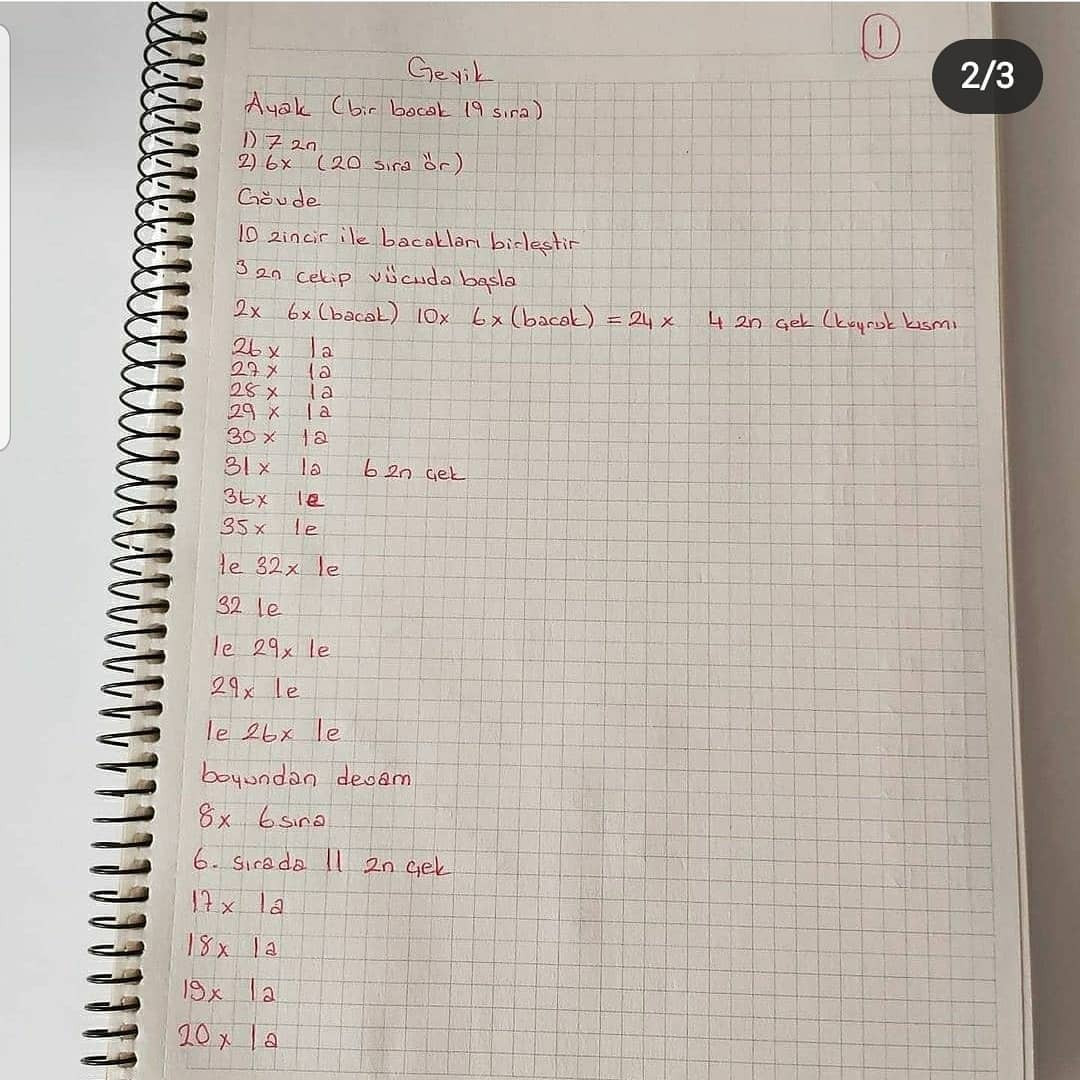 1
2/3
Geyik
Ayak (bir bacak 19 sıra)
1) 7 zn
2) 6x (20 sıra ör)
Gövde
10 zincir ile bacakları birleştir
3 zn çekip vücuda başla
2x 6x (bacak) 10x 6x (bacak) = 24x 4 zn çek (kuyruk kısmı
26x 1a
27x 1a
28x 1a
29x 1a
30x 1a
31x 1a 6 zn çek
36x 1e
35x 1e
1e 32x 1e
32 1e
1e 29x 1e
29x 1e
1e 26x 1e
boyundan devam
8x 6 sıra
6. sırada 11 zn çek
17x 1a
18x 1a
19x 1a
20x 1a